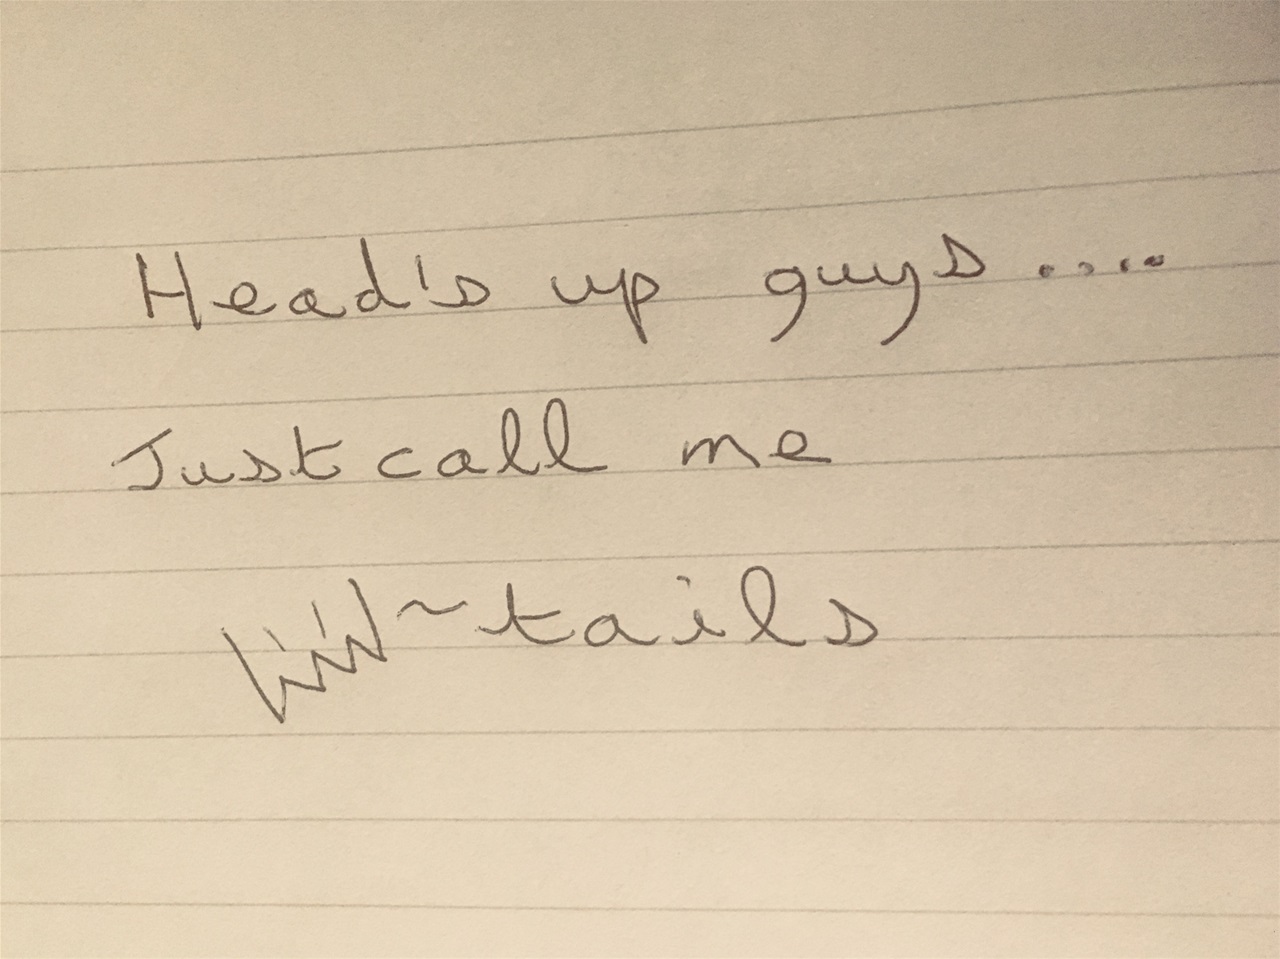 Head's up guys....
Just call me
~tails